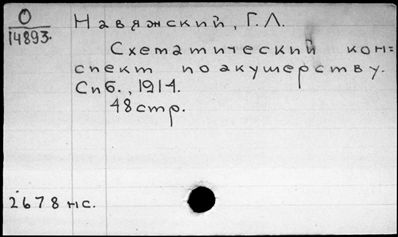 О
14893.
Навяжский, Г.Л.
Схематический кон-
спект по акушерству.
Спб., 1914.
48 стр.
2678 нс.